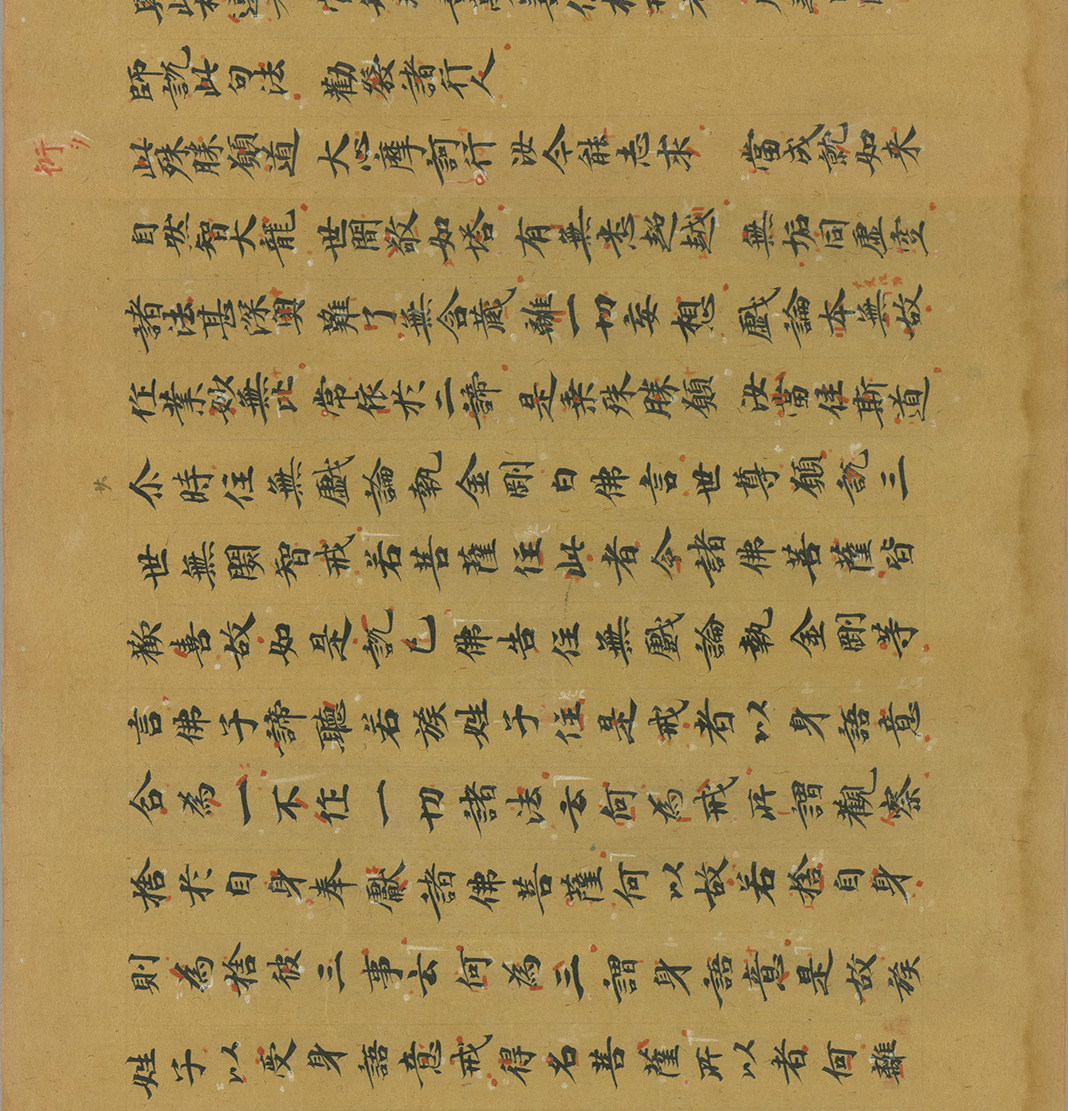 師說此句法　勸發諸行人
此殊勝願道　大心摩訶行　汝今能志求　當成就如来
衍
自然智大龍　世間敬如塔　有無悉超越　無垢同虛空
諸法甚深奧　難了無含藏　離一切妄想　戲論本無故
作業妙無比　常依於二諦　是乘殊勝願　汝當住斯道
尒時住無戲論執金剛白佛言世尊願說三
世無閡智戒若菩薩住此者令諸佛菩薩皆
歡喜故如是說已佛告住無戲論執金剛等
言佛子諦聽若族姓子住是戒者以身語意
合為一不作一切諸法云何為戒所謂觀察
捨於自身奉獻諸佛菩薩何以故若捨自身
則為捨彼三事云何為三謂身語意是故族
姓子以受身語意戒得名菩薩所以者何離